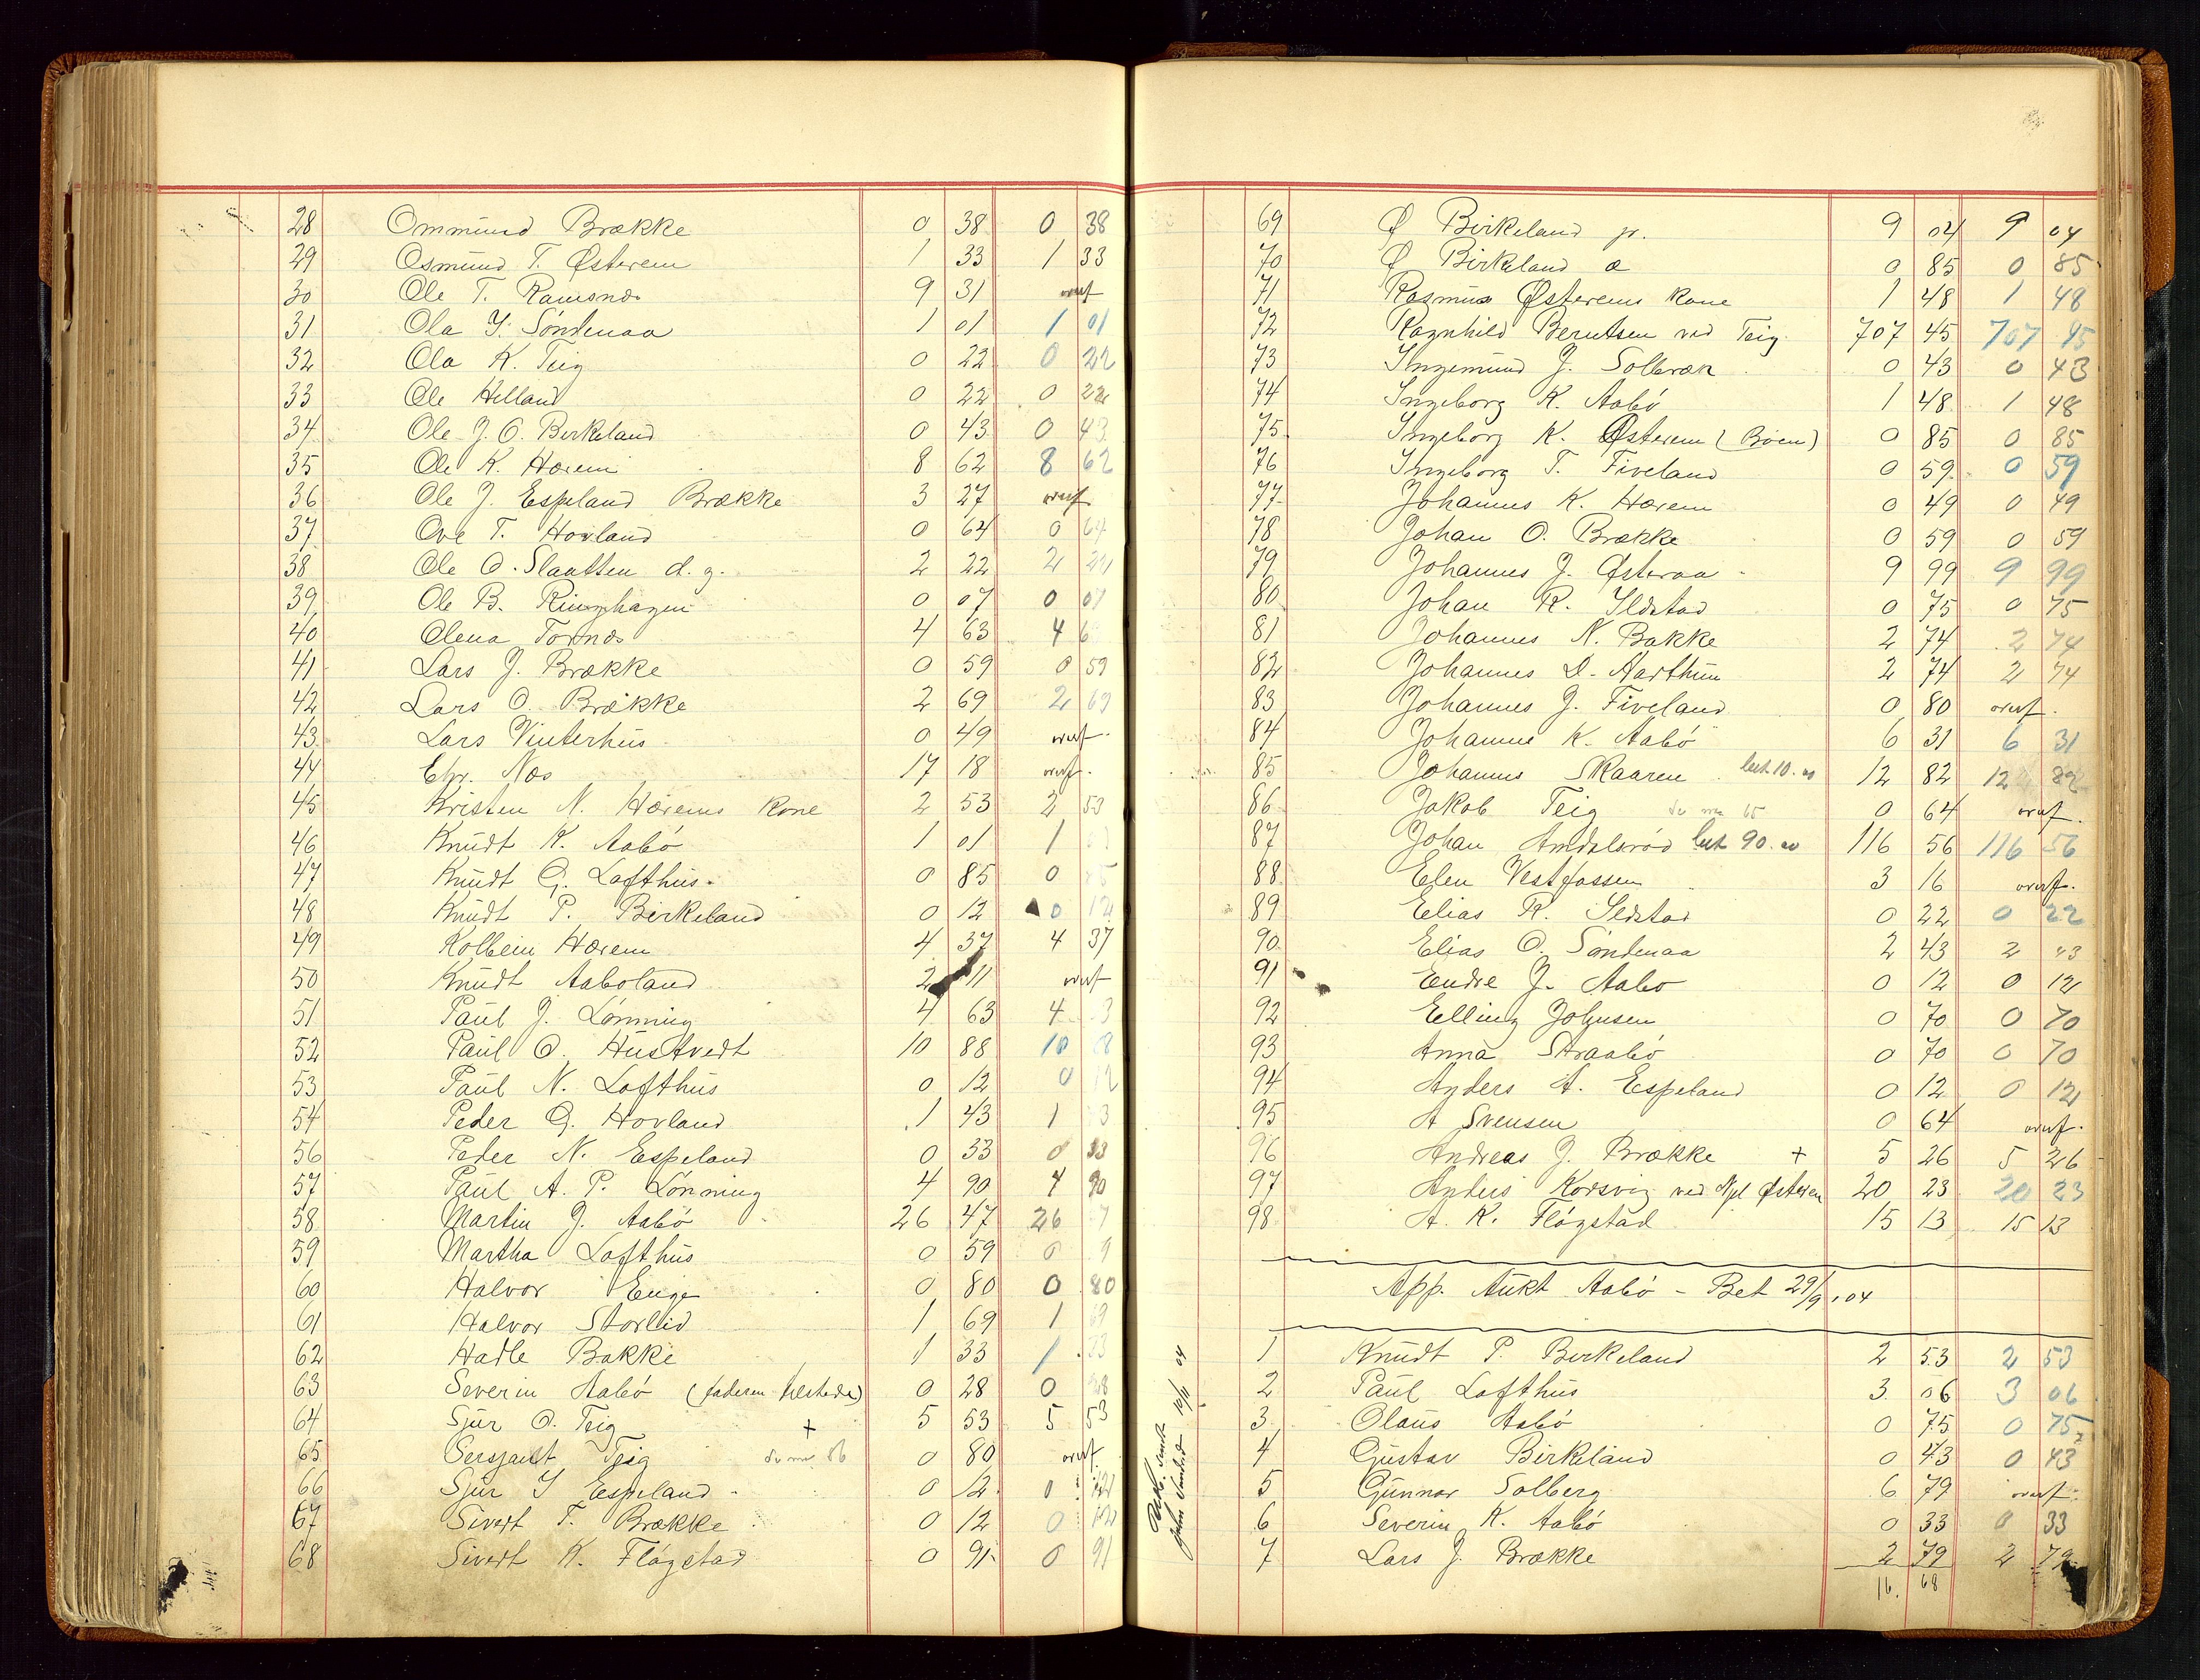 28 Ommund Brække 0 38 0 38
29 Osmund T. Østerem 1 33 1 33
30 Ole T. Ramsnæs 9 31 overf
31 Ola J. Søndenaa 1 01 1 01
32 Ola K. Teig 0 22 0 22
33 Ole Helland 0 22 0 22
34 Ole J. O. Birkeland 0 43 0 43
35 Ole K. Hærem 8 62 8 62
36 Ole J. Espeland Brække 3 27 overf.
37 Ove T. Hovland 0 64 0 64
38 Ole O. Slaatten d. y. 2 22 2 22
39 Ole B. Ringhagen 0 07 0 07
40 Olena Tornæs 4 63 4 6
41 Lars J. Brække 0 59 0 59
42 Lars O. Brække 2 69 2 69
43 Lars Vinterhus 0 49 overf.
44 Chr. Næs 17 18 overf.
45 Kristen N. Hærems Kone 2 53 2 53
46 Knudt K. Aabø 1 01 1
47 Knudt G. Lofthus. 0 85 0 5
48 Knudt P. Birkeland 0 12 0 12
49 Kolbein Hærem 4 37 4 37
50 Knudt Aaboland 2 11 overf
51 Paul J. Lønning 4 63 4 3
52 Paul O. Hustvedt 10 88 10 8
53 Paul N. Lofthus 0 12 0 12
54 Peder G. Hovland 1 43 1 3
56 Peder N. Espeland 0 33 0 33
57 Paul A. P. Lønning 4 90 4 90
58 Martin J. Aabø 26 47 26 7
59 Martha Lofthus 0 59 0 9
60 Halvor Enge 0 80 0 80
61 Halvor Storlid 1 69 1 69
62 Hadle Bakke 1 33 1 33
63 Severin Aabø (faderen hersteds) 0 28 0 28
64 Sjur O. Teig + 5 53 5 53
65 Sersjant Teig 0 80 overf.
66 Sjur I Espeland 0 12 0 12
67 Sivert T. Brække 0 12 0 12
68 Sivert K. Fløgstad 0 91 0 91
69 Ø Birkeland jr. 9 04 9 04
70 Ø Birkeland æ 0 85 0 85
71 Rasmus Østerems Kone 1 48 1 48
72 Ragnhild Berntsen ved Teig. 707 45 707 45
73 Ingemund J. Solbræk 0 43 0 43
74 Ingeborg K. Aabø 1 48 1 48
75 Ingeborg K. Østerem (Bøen) 0 85 0 85
76 Ingeborg T. Fiveland 0 59 0 59
77 Johannes K. Hærem 0 49 0 49
78 Johan O. Brække 0 59 0 59
79 Johannes J. Østeraa 9 99 9 99
80 Johan R. Ildstad 0 75 0 75
81 Johannes N. Bakke 2 74 2 74
82 Johannes D. Aarthun 2 74 2 74
83 Johannes J. Fiveland 0 80 overf.
84 Johannes K. Aabø 6 31 6 31
85 Johannes Skaaren 10.00 12 82 12 82
86 Jakob Teig 0 64 overf.
87 Johan Amdalsrød 90.00 116 56 116 56
88 Elen Vestfossen 3 16 overf.
89 Elias R. Ildstad 0 22 0 22
90 Elias O. Søndenaa 2 43 2 43
91 Endre J. Aabo 0 12 0 12
92 Elling Johnsen 0 70 0 70
93 Anna Straabø 0 70 0 70
94 Anders A. Espeland 0 12 0 12
95 A Svensen 0 64 overf.
96 Andreas J. Brække + 5 26 5 26
97 Anders Korsvig ved Njel Østerem 20 23 20 23
98 A. K. Fløgstad 15 13 15 13
App. Aukt Aabø - Bet 29/9.04
1 Knudt P. Birkeland 2 53 2 53
2 Paul Lofthus 3 06 3 06
3 Olaus Aabø 0 75 0 75
4 Gustav Birkeland 0 43 0 43
5 Gunnar Solberg 6 79 overf.
6 Severin K. Aabø 0 33 0 33
7 Lars J. Brække 2 79 2 79
16. 68